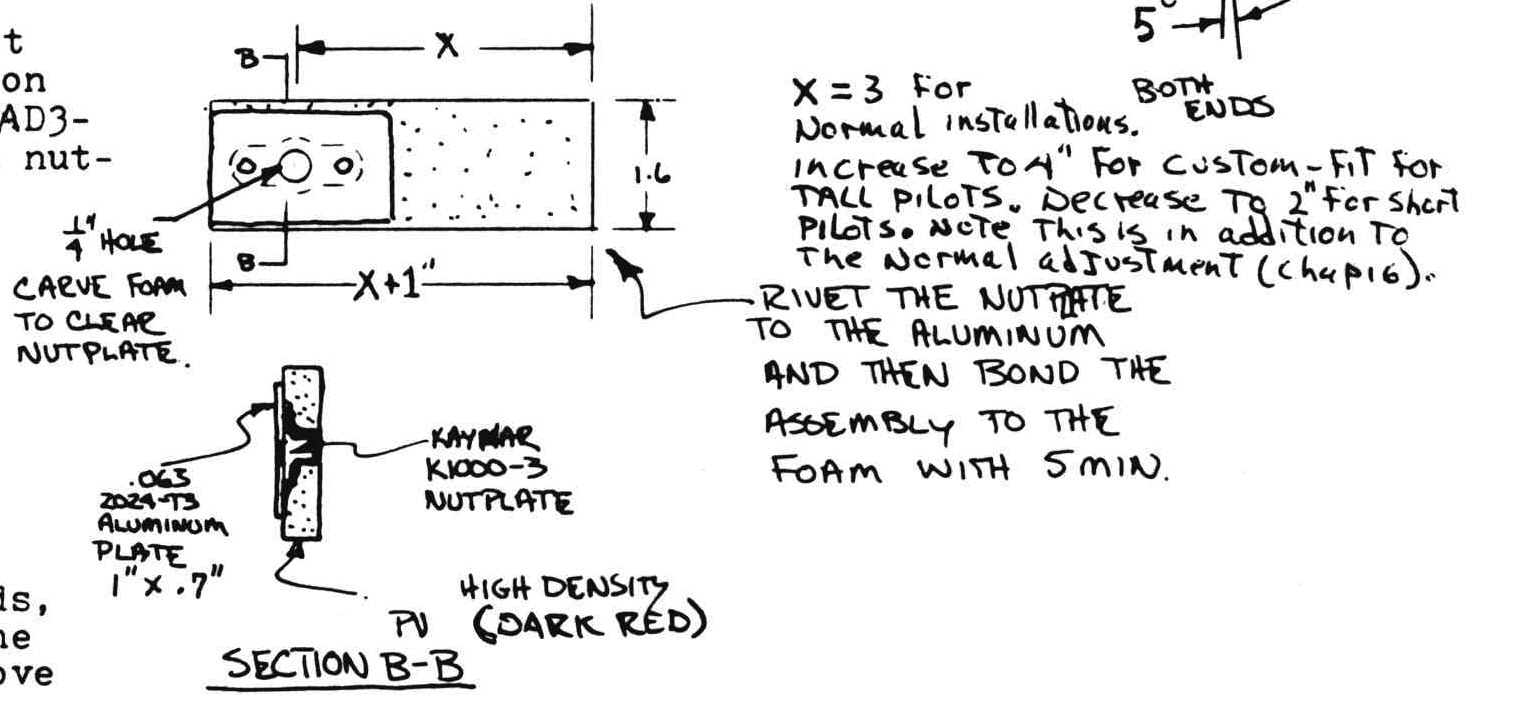 t
on
AD3-
nut-
B
X
1.6
B
X+1"
1/4" HOLE
CARVE FOAM
TO CLEAR
NUTPLATE.
5°
BOTH
ENDS
X = 3 For
Normal installations.
increase To 4" For Custom-Fit for
TALL PILOTS. Decrease To 2" For short
PILOTS. Note This is in addition To
The Normal adjustment (Chap16).
RIVET THE NUTPLATE
TO THE ALUMINUM
AND THEN BOND THE
ASSEMBLY TO THE
FOAM WITH 5 MIN.
.063
2024-T3
ALUMINUM
PLATE
1" x .7"
KAYNAR
K1000-3
NUTPLATE
HIGH DENSITY
PV (DARK RED)
SECTION B-B
is,
he
ove